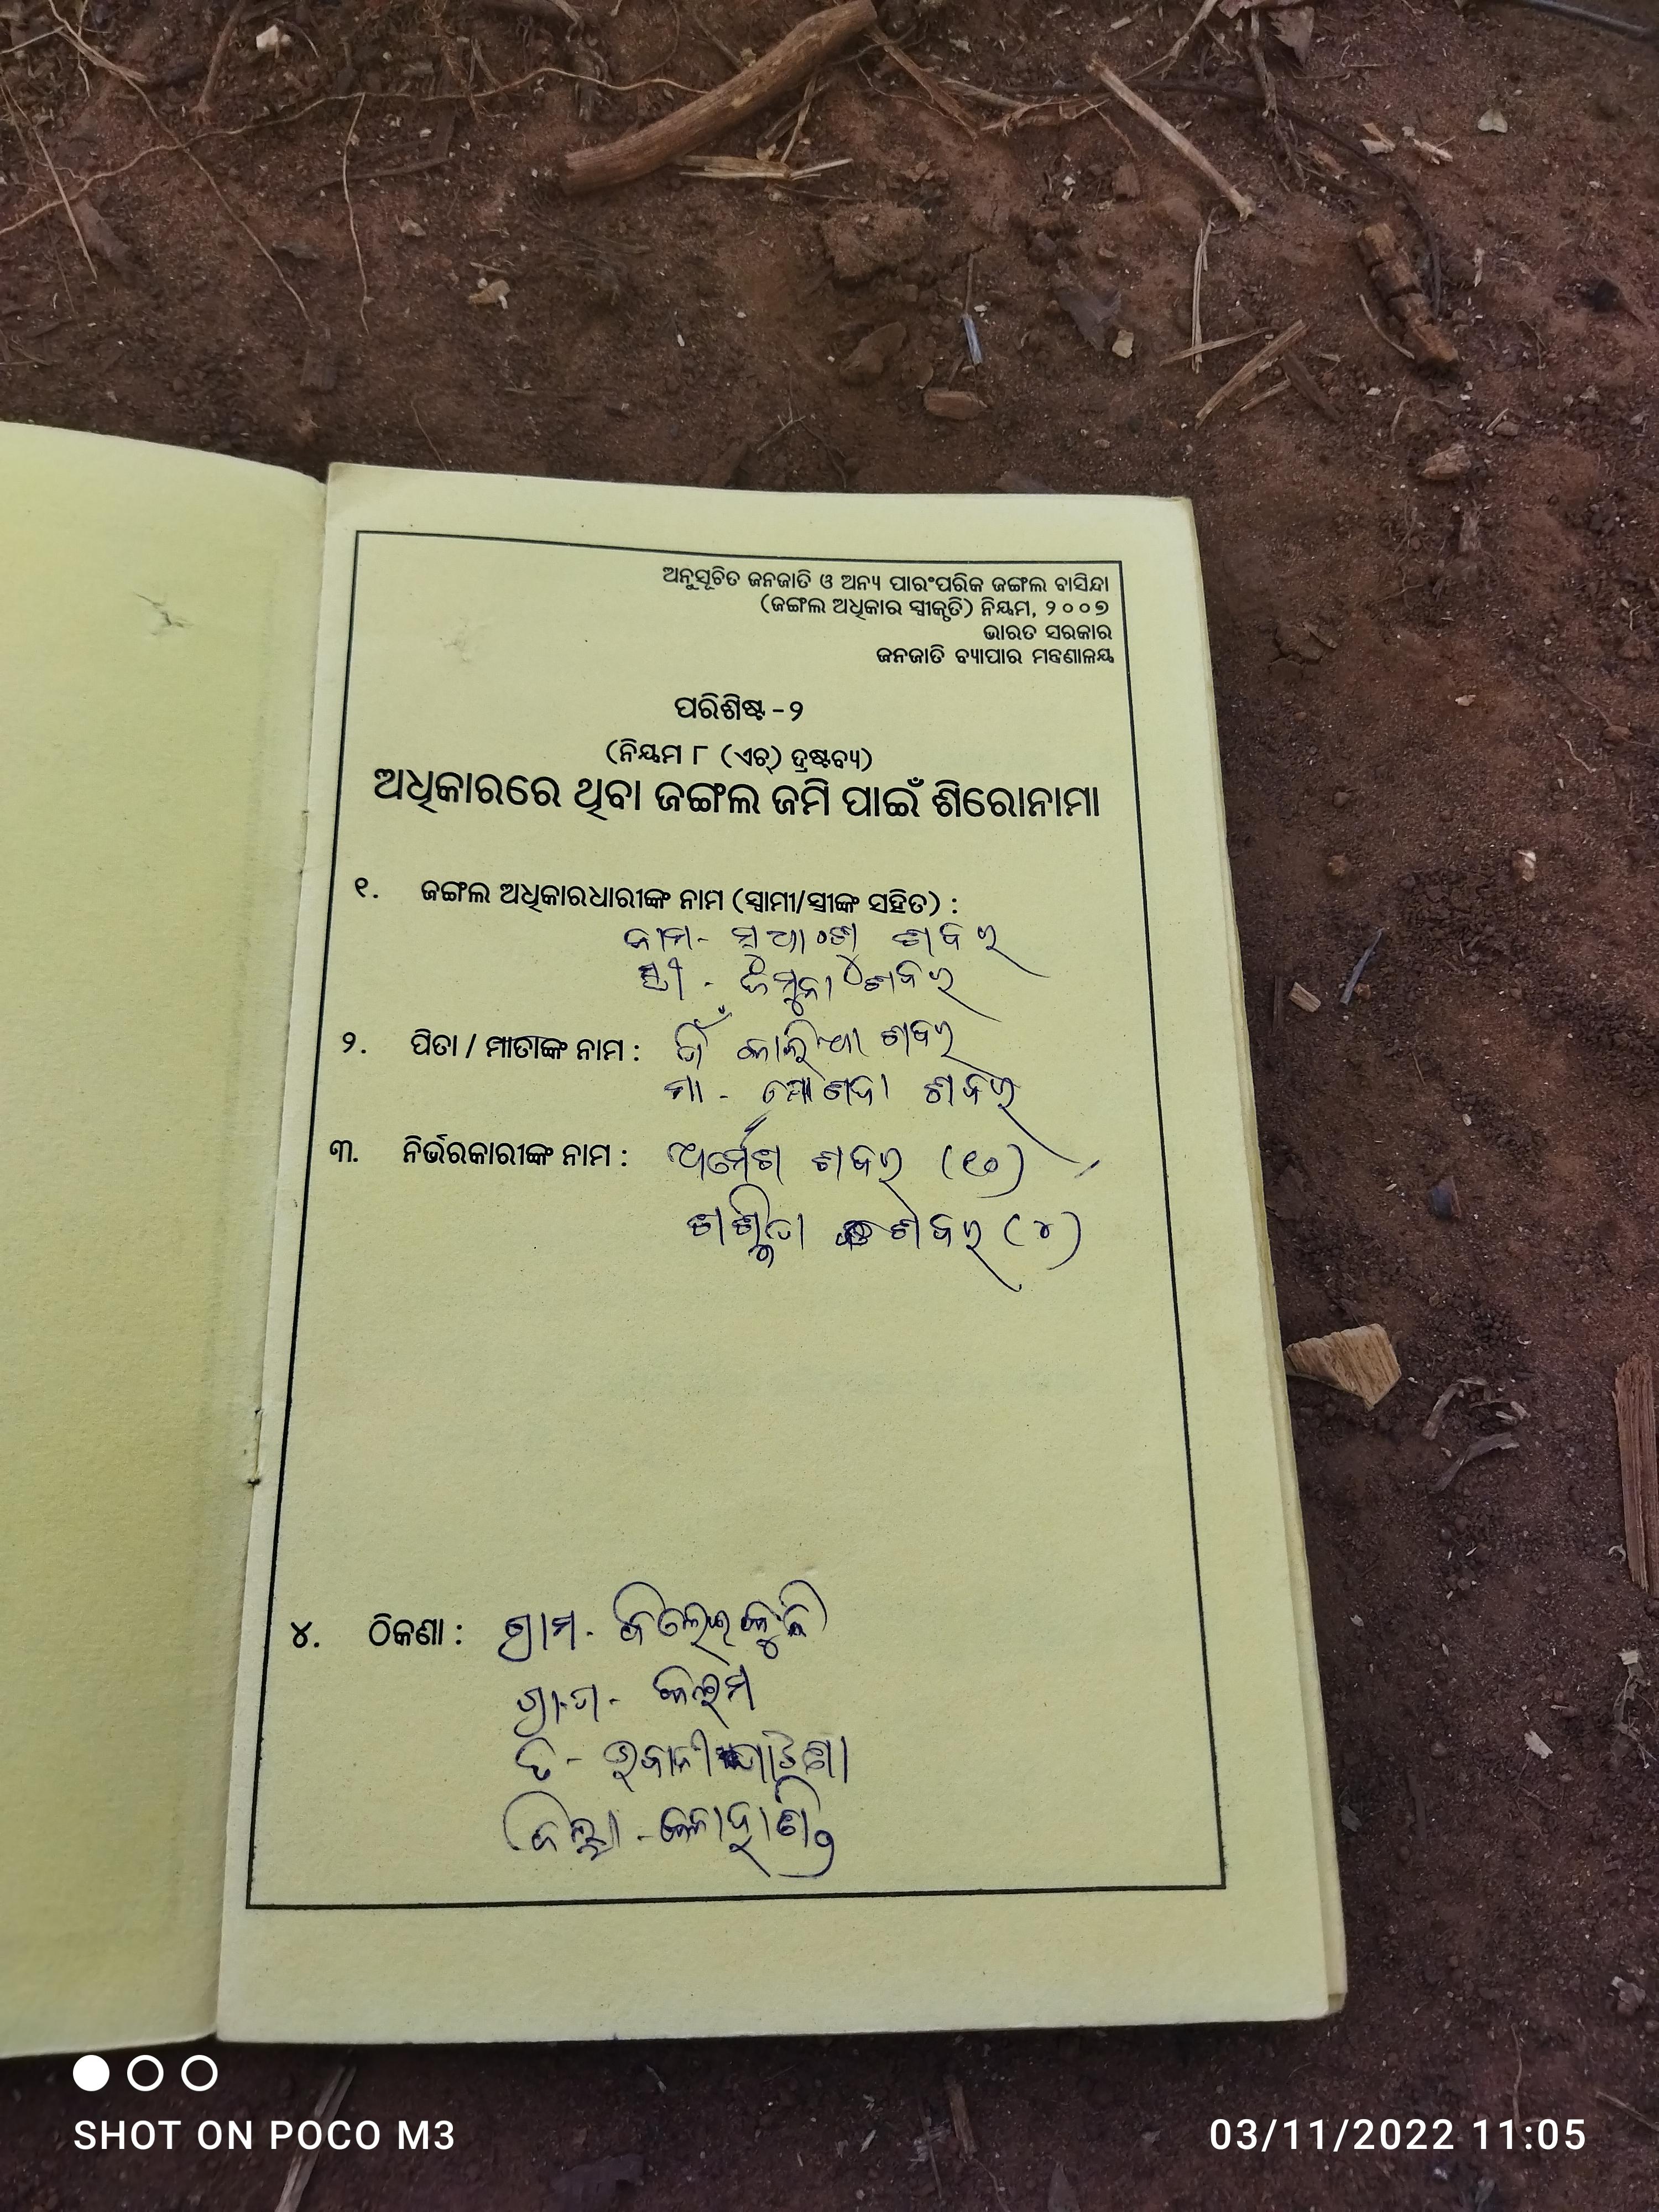 ଅନୁସୂଚିତ ଜନଜାତି ଓ ଅନ୍ୟ ପାରଂପରିକ ଜଙ୍ଗଲ ବାସିନ୍ଦା
(ଜଙ୍ଗଲ ଅଧିକାର ସ୍ୱୀକୃତି) ନିୟମ, ୨୦୦୭
ଭାରତ ସରକାର
ଜନଜାତି ବ୍ୟାପାର ମନ୍ତ୍ରଣାଳୟ
ପରିଶିଷ୍ଟ-୨
(ନିୟମ ୮ (ଏଚ୍) ଦ୍ରଷ୍ଟବ୍ୟ)
ଅଧିକାରରେ ଥିବା ଜଙ୍ଗଲ ଜମି ପାଇଁ ଶିରୋନାମା
୧. ଜଙ୍ଗଲ ଅଧିକାରଧାରୀଙ୍କ ନାମ (ସ୍ୱାମୀ/ସ୍ତ୍ରୀଙ୍କ ସହିତ) :
ନାମ- ଶବର
ସ୍ତ୍ରୀ - ଶବର
୨. ପିତା / ମାତାଙ୍କ ନାମ : ଶବର
ମା - ଶବର
୩. ନିର୍ଭରକାରୀଙ୍କ ନାମ : ଶବର (୧୦)
ଶବର (୪)
୪. ଠିକଣା : ଗ୍ରାମ-
ଗ୍ରା.ପ-
ବ - ଭବାନୀପାଟଣା
ଜିଲ୍ଲା - କଳାହାଣ୍ଡି
SHOT ON POCO M3
03/11/2022 11:05